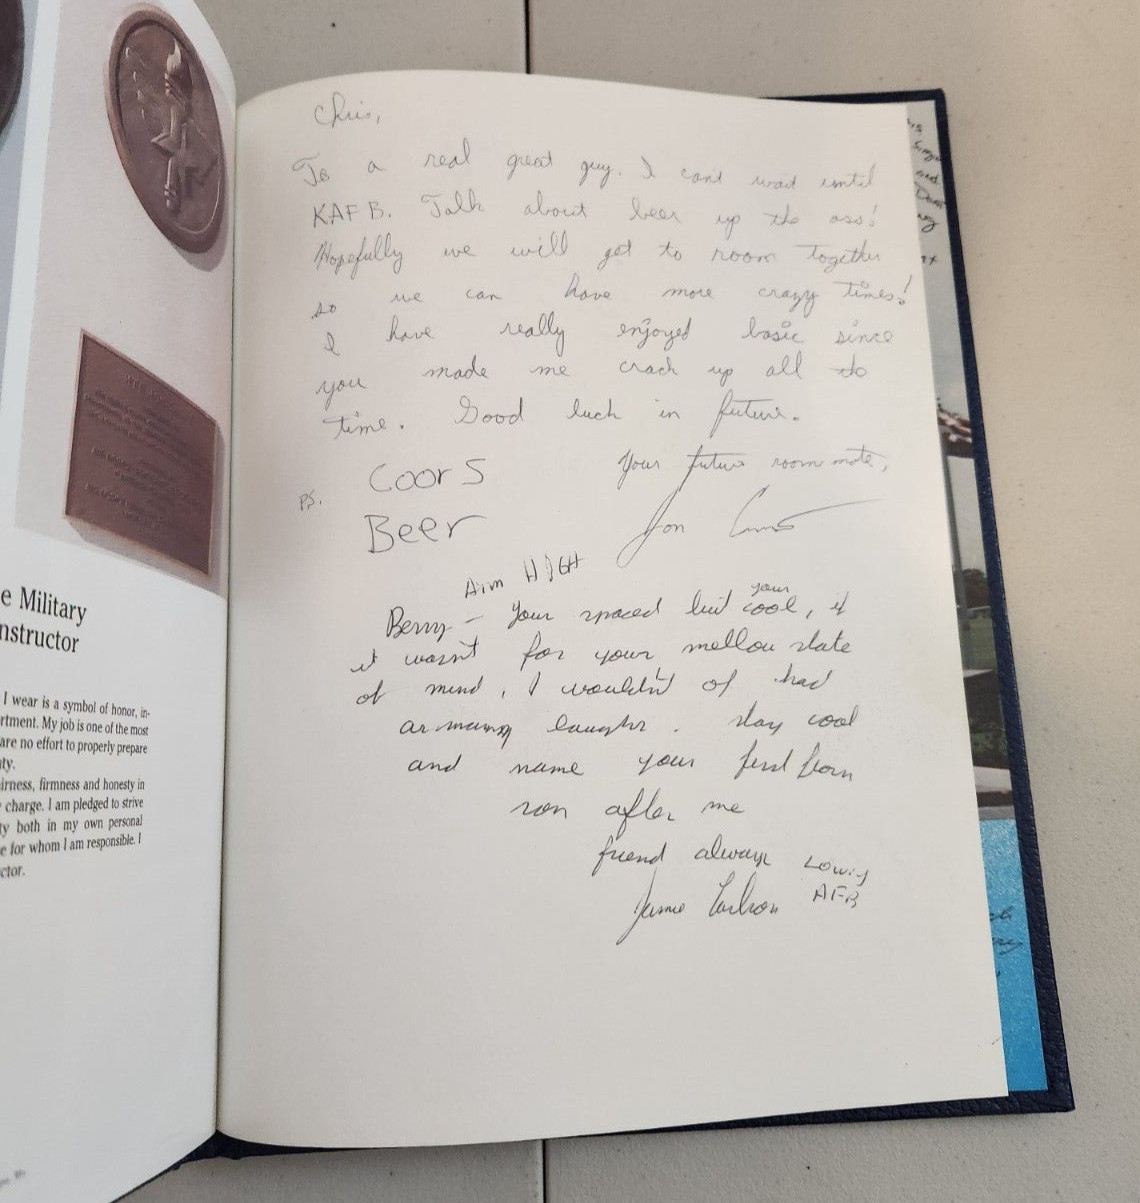 e Military
nstructor
I wear is a symbol of honor, in-
rtment. My job is one of the most
are no effort to properly prepare
ty.
irness, firmness and honesty in
charge. I am pledged to strive
ty both in my own personal
e for whom I am responsible. I
ctor.
Chris,
To a real great guy. I cant wait until
KAFB. Talk about beer up the ass!
Hopefully we will get to room together
so we can have more crazy times!
I have really enjoyed basic since
you made me crack up all the
time. Good luck in future.
Your future roommate,
Jon
PS. Coors
Beer
Aim HIGH
Berry - Your spaced but your cool, if
it wasn't for your mellow state
of mind, I wouldn't of had
as many laughs. stay cool
and name your first born
son after me
friend always Lowry
Jamie AFB